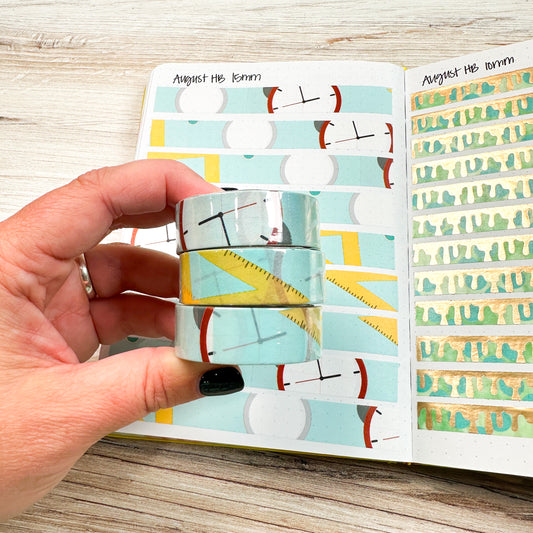 August HB 15mm
August HB 10mm